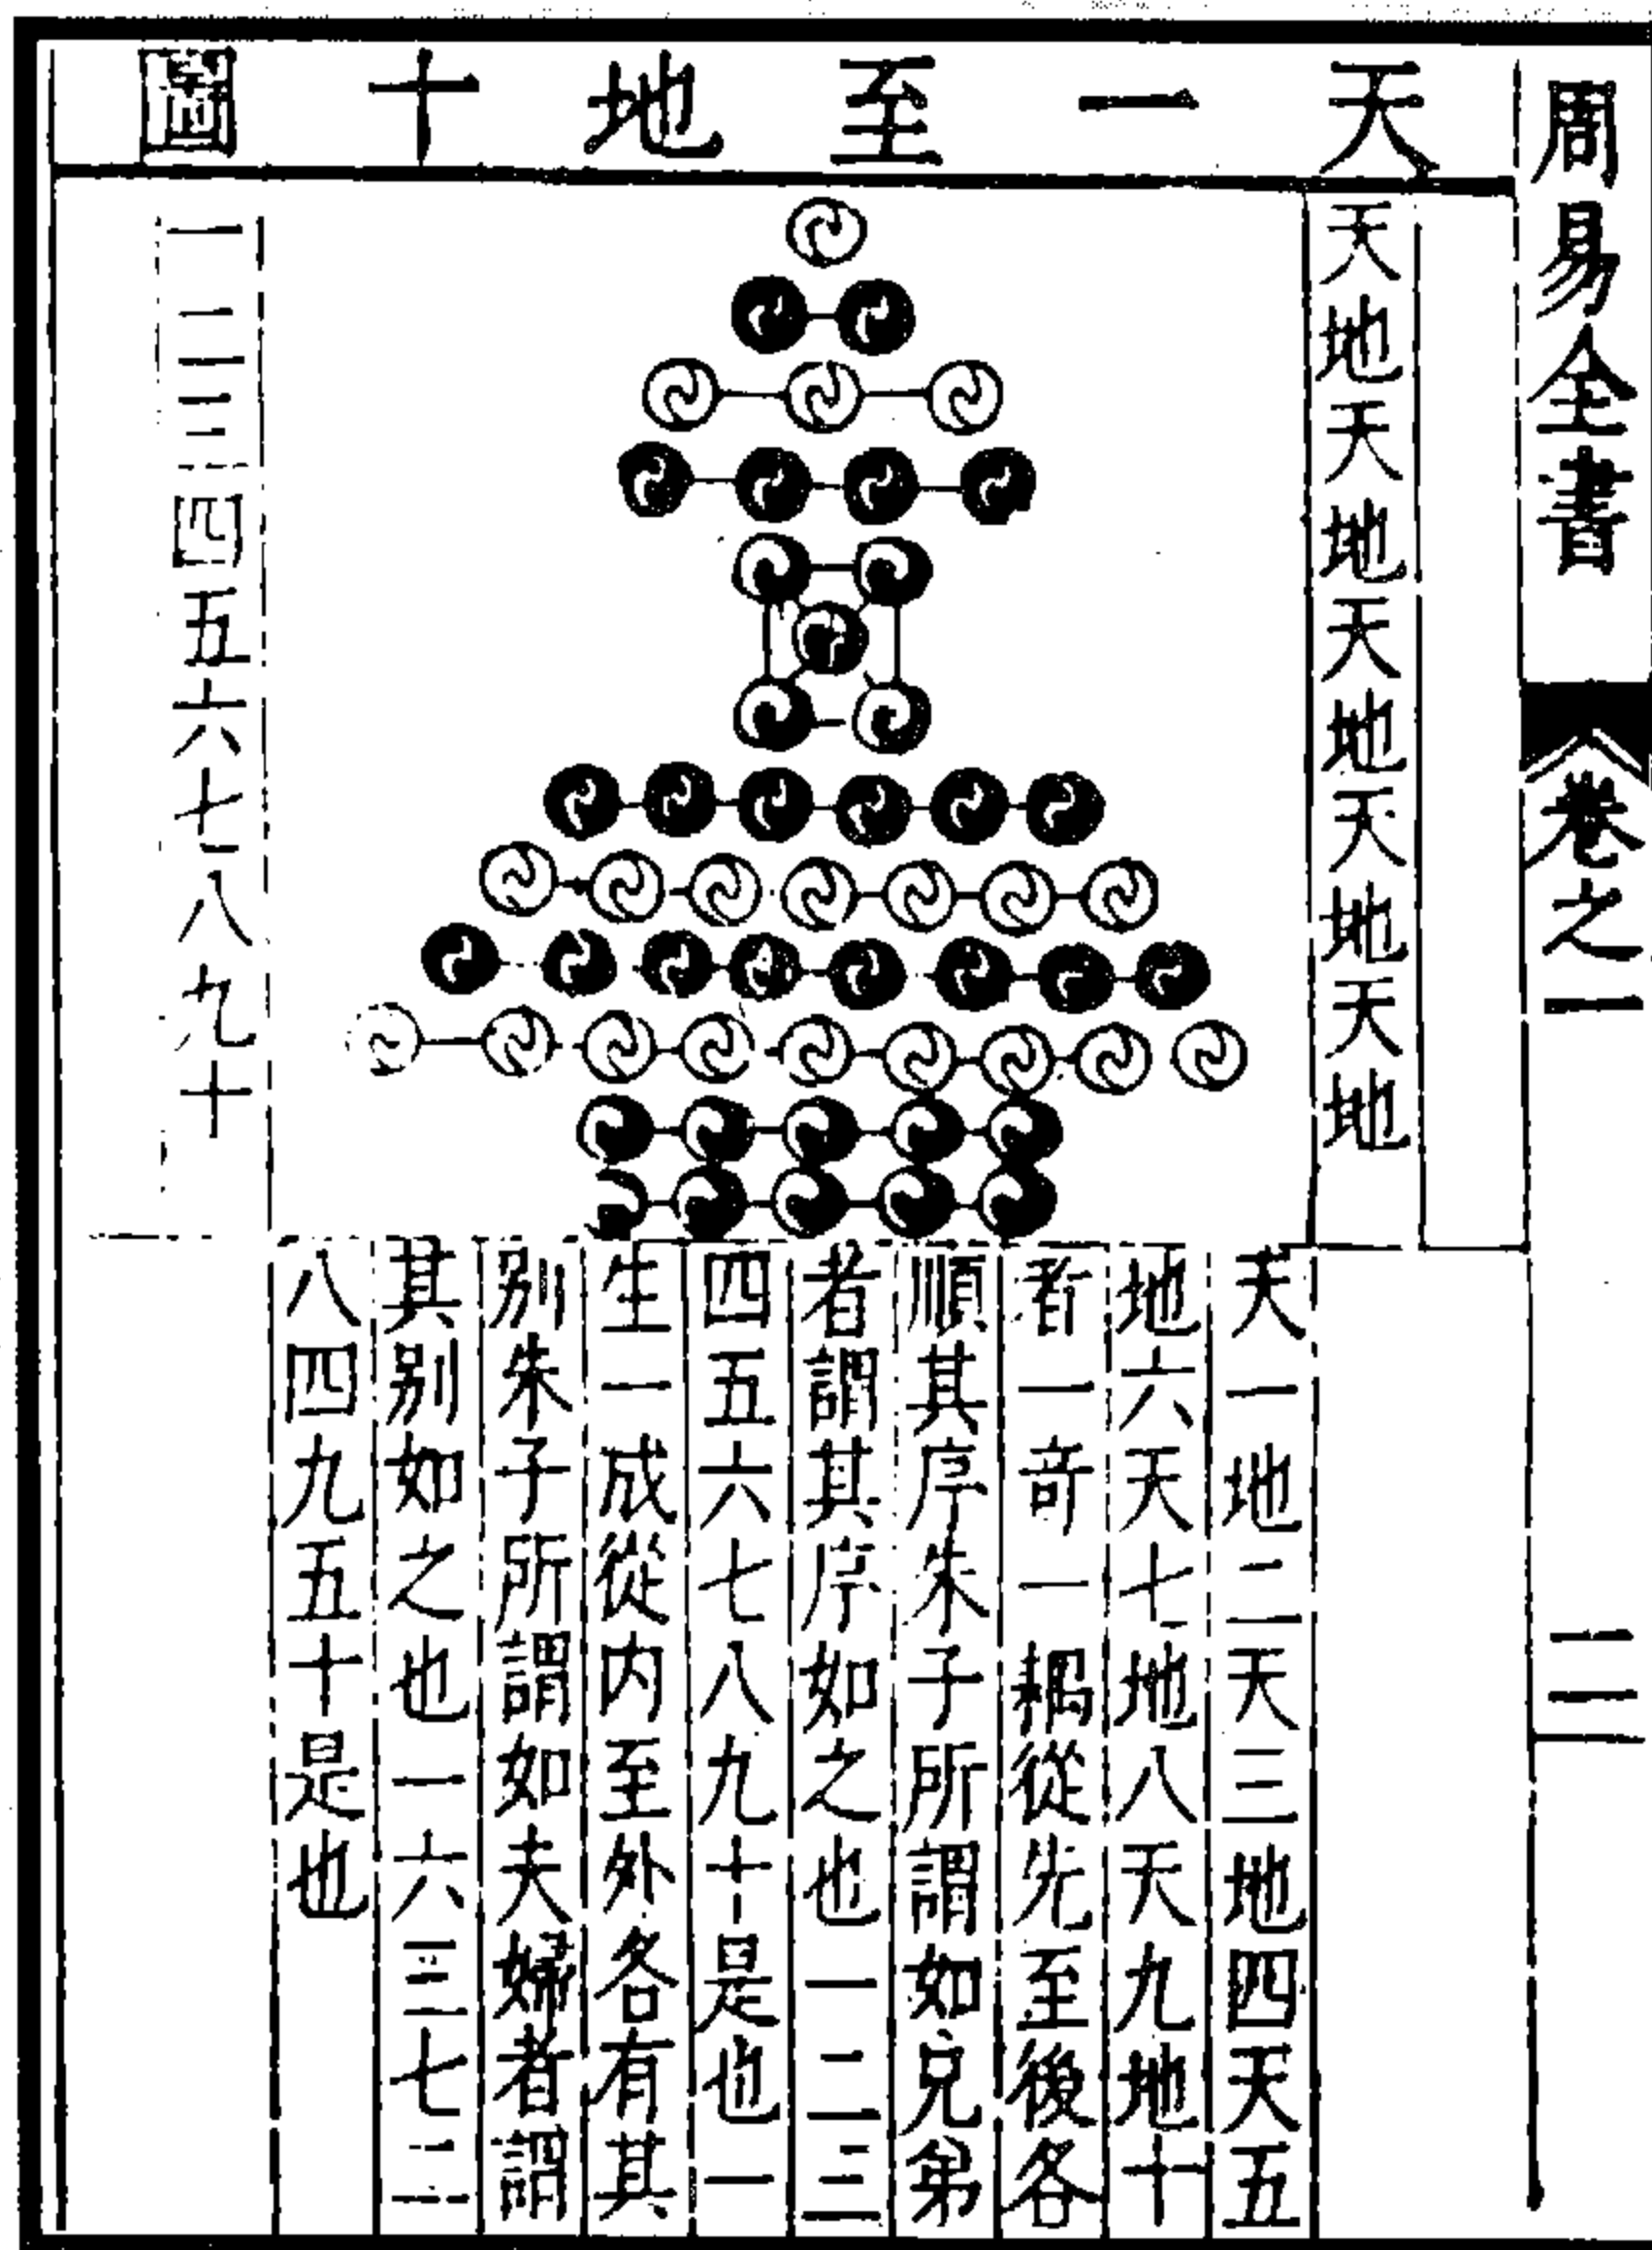 周易全書
卷之一
二
天一至地十圖
天地天地天地天地天地
一二三四五六七八九十
天一地二天三地四天五
地六天七地八天九地十
看一竒一耦從先至後各
順其序朱子所謂如兄弟
者謂其序如之也一二三
四五六七八九十是也一
生一成從内至外各有其
别朱子所謂如夫婦者謂
其别如之也一六三七二
八四九五十是也